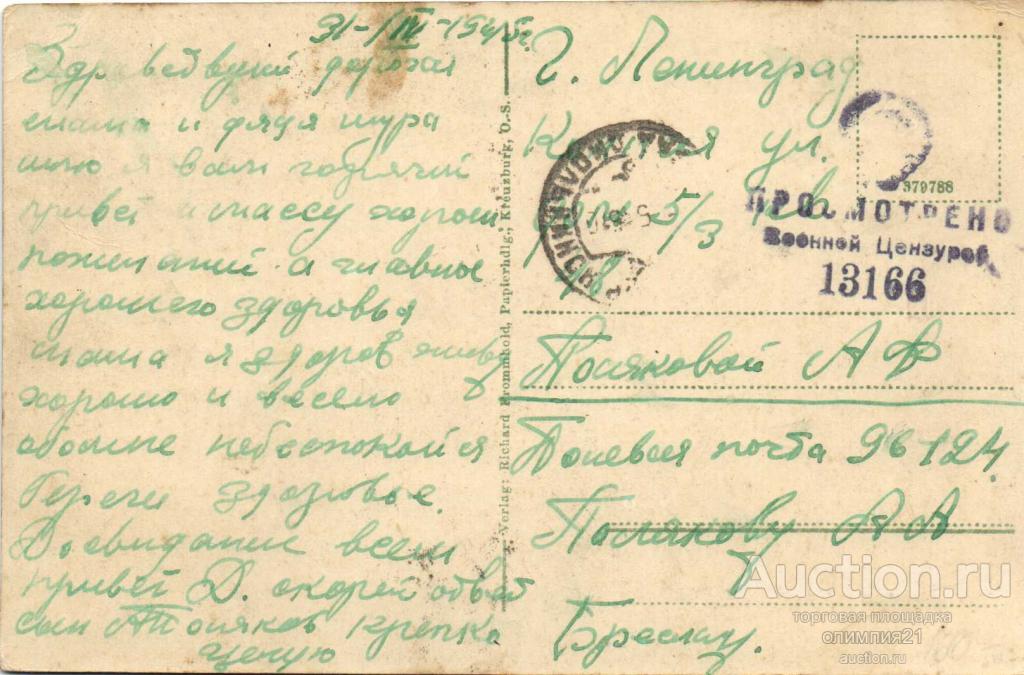 31-/IV-1945г.
Здраведвуй дорогая
мама и дядя шура
шлю я вам горячий
привет и массу хорош
пожиланий а главное
хорошего здоровья
мама я здоров живу
хорошо и весело
обомне небеспокойся
береги здоровье.
Досвидание всем
привет Д. скорей ответ
сын Поляков крепко
целую
Verlag: Richard Frommhold, Papierhdlg., Kreuzburg, O.-S.
г. Ленинград
ул.
5/3 кв
18
379788
ПРОСМОТРЕНО
Военной Цензурой
13166
Поляковой А Ф
Полевая почта 96124
Полякову А А
Бреслау.
Auction.ru
торговая площадка
олимпия21
auction.ru